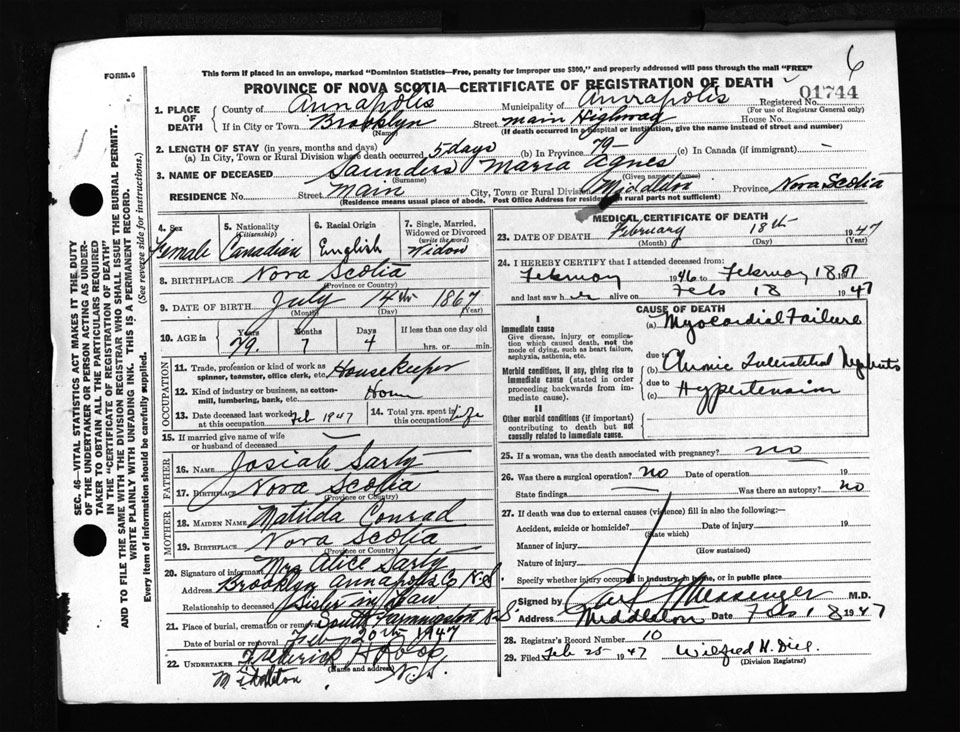 6
FORM-6
This form if placed in an envelope, marked "Dominion Statistics—Free, penalty for improper use $300," and properly addressed will pass through the mail "FREE"
PROVINCE OF NOVA SCOTIA—CERTIFICATE OF REGISTRATION OF DEATH
01744
1. PLACE OF DEATH County of Annapolis Municipality of Annapolis Registered No.
(For use of Registrar General only)
If in City or Town Brooklyn Street main Highway House No.
(Name) (If death occurred in a hospital or institution, give the name instead of street and number)
2. LENGTH OF STAY (in years, months and days)
(a) In City, Town or Rural Division where death occurred 5 days (b) In Province 79 (c) In Canada (if immigrant) -
3. NAME OF DECEASED Saunders Maria Agnes
(Surname) (Given names)
RESIDENCE No. Street Main City, Town or Rural Division Middleton Province Nova Scotia
(Residence means usual place of abode. Post Office Address for residents in rural parts not sufficient)
SEC. 46—VITAL STATISTICS ACT MAKES IT THE DUTY
OF THE UNDERTAKER OR PERSON ACTING AS UNDER-
TAKER TO OBTAIN ALL THE PARTICULARS REQUIRED
IN THE "CERTIFICATE OF REGISTRATION OF DEATH"
AND TO FILE THE SAME WITH THE DIVISION REGISTRAR WHO SHALL ISSUE THE BURIAL PERMIT.
WRITE PLAINLY WITH UNFADING INK. THIS IS A PERMANENT RECORD.
Every item of Information should be carefully supplied. (See reverse side for instructions.)
4. Sex 5. Nationality (Citizenship) 6. Racial Origin 7. Single, Married, Widowed or Divorced (write the word)
Female Canadian English Widow
8. BIRTHPLACE Nova Scotia
(Province or Country)
9. DATE OF BIRTH July 14th 1867
(Month) (Day) (Year)
10. AGE in Years Months Days If less than one day old
79 7 4 hrs. or min.
OCCUPATION
11. Trade, profession or kind of work as spinner, teamster, office clerk, etc. Housekeeper
12. Kind of industry or business, as cotton-mill, lumbering, bank, etc. Home
13. Date deceased last worked at this occupation Feb 1947 14. Total yrs. spent in this occupation life
15. If married give name of wife or husband of deceased
FATHER
16. NAME Josiah Sarty
17. BIRTHPLACE Nova Scotia
(Province or Country)
MOTHER
18. MAIDEN NAME Matilda Conrad
19. BIRTHPLACE Nova Scotia
(Province or Country)
20. Signature of informant Mrs Alice Sarty
Address Brooklyn Annapolis Co N.S.
Relationship to deceased Sister in Law
21. Place of burial, cremation or removal South Farmington N.S.
Date of burial or removal Feb 20th 1947
22. UNDERTAKER Frederick H
(Name and address)
Middleton N.S.
MEDICAL CERTIFICATE OF DEATH
23. DATE OF DEATH February 18th 1947
(Month) (Day) (Year)
24. I HEREBY CERTIFY that I attended deceased from:
February 1946 to February 18 47
and last saw her alive on Feb 18 1947
CAUSE OF DEATH
I
Immediate cause
Give disease, injury or complication which caused death, not the mode of dying, such as heart failure, asphyxia, asthenia, etc.
(a) Myocardial Failure
due to
Morbid conditions, if any, giving rise to immediate cause (stated in order proceeding backwards from immediate cause).
(b) Chronic Interstitial Nephritis
due to
(c) Hypertension
II
Other morbid conditions (if important) contributing to death but not causally related to immediate cause.
25. If a woman, was the death associated with pregnancy? no
26. Was there a surgical operation? no Date of operation 19
State findings Was there an autopsy? no
27. If death was due to external causes (violence) fill in also the following:—
Accident, suicide or homicide? Date of injury 19
(State which)
Manner of injury
(How sustained)
Nature of injury
Specify whether injury occurred in industry, in home, or in public place
Signed by Carl Messenger M.D.
Address Middleton Date Feb. 18 1947
28. Registrar's Record Number 10
29. Filed Feb 25 1947 Wilfred H. Diel
(Division Registrar)